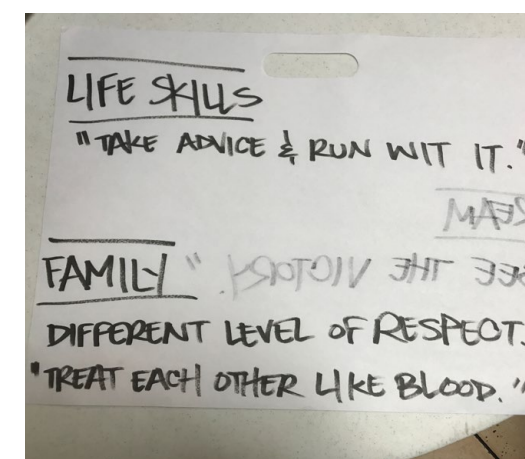 LIFE SKILLS
"TAKE ADVICE & RUN WIT IT."
FAMILY
DIFFERENT LEVEL OF RESPECT.
"TREAT EACH OTHER LIKE BLOOD."